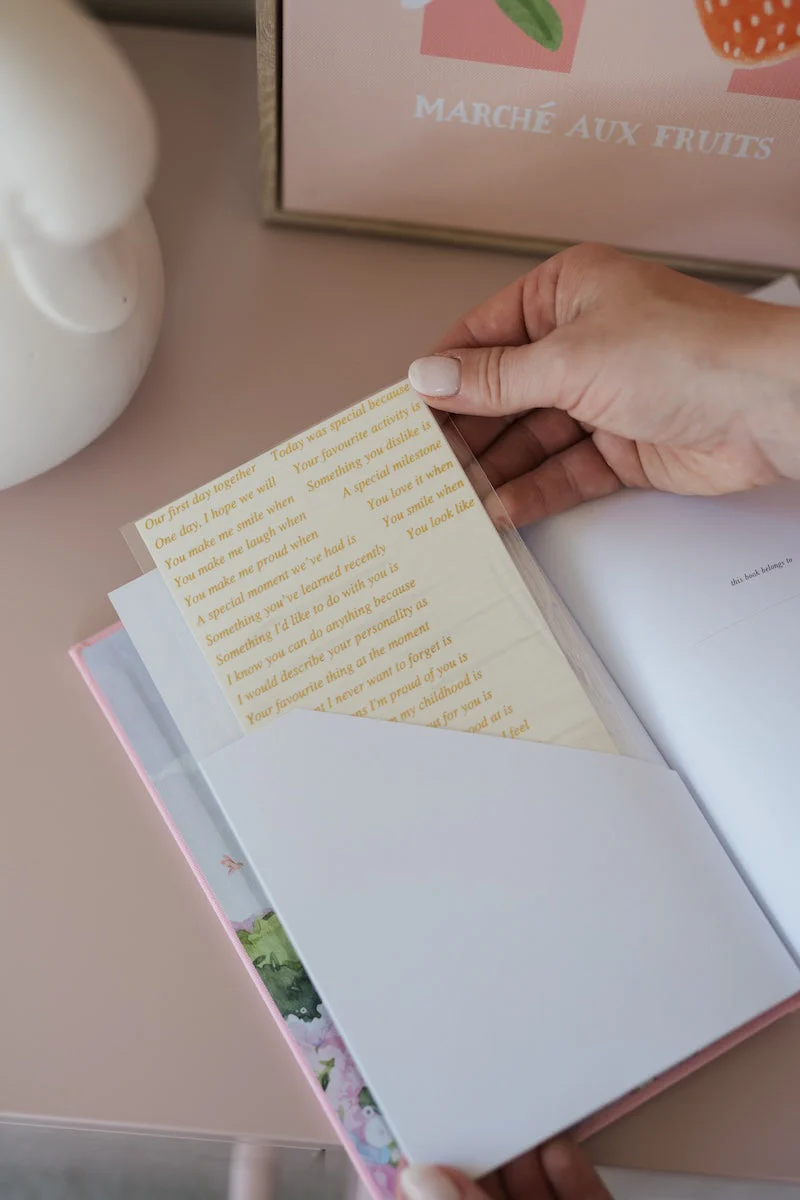 MARCHÉ AUX FRUITS
Our first day together
One day, I hope we will
You make me smile when
You make me laugh when
You make me proud when
A special moment we've had is
Something you've learned recently
Something I'd like to do with you is
I know you can do anything because
I would describe your personality as
Your favourite thing at the moment
I never want to forget is
I'm proud of you is
my childhood is
for you is
at is
feel
Today was special because
Your favourite activity is
Something you dislike is
A special milestone
You love it when
You smile when
You look like
this book belongs to